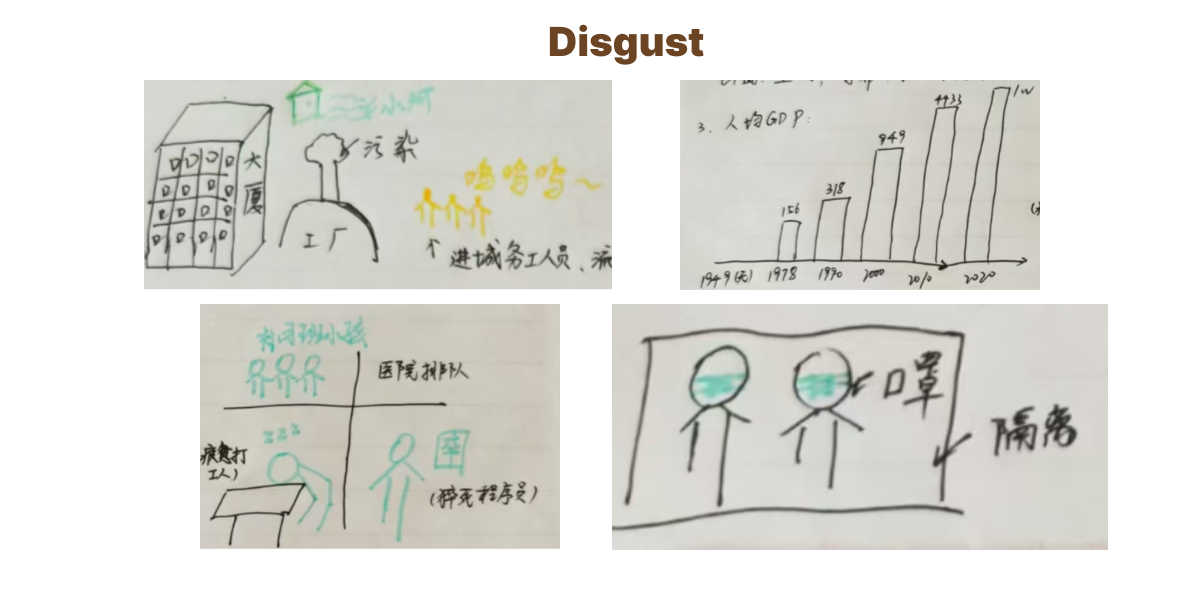 Disgust
小河
大厦
污染
工厂
呜呜呜~
进城务工人员、流
3. 人均GDP:
156
318
949
4433
1w
1949(无) 1978 1990 2000 2010 2020
医院排队
zzz
疲惫打
工人)
(猝死程序员)
口罩
隔离